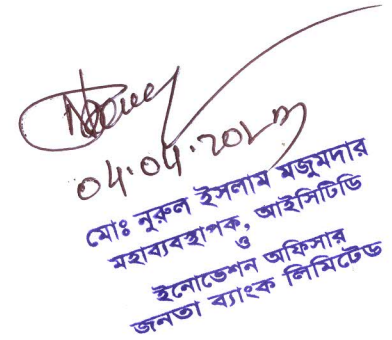 04.04.2023
মোঃ নুরুল ইসলাম মজুমদার
মহাব্যবস্থাপক, আইসিটিডি
ও
ইনোভেশন অফিসার
জনতা ব্যাংক লিমিটেড